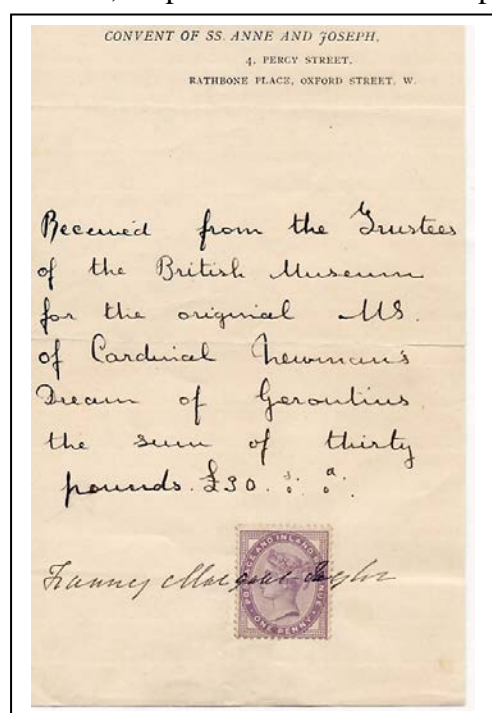 CONVENT OF SS. ANNE AND JOSEPH,
4, PERCY STREET,
RATHBONE PLACE, OXFORD STREET, W.
Received from the Trustees
of the British Museum
for the original MS.
of Cardinal Newman's
Dream of Gerontius
the sum of thirty
pounds. £30. s. d.
Fanny Margaret Taylor
POSTAGE AND INLAND REVENUE
ONE PENNY